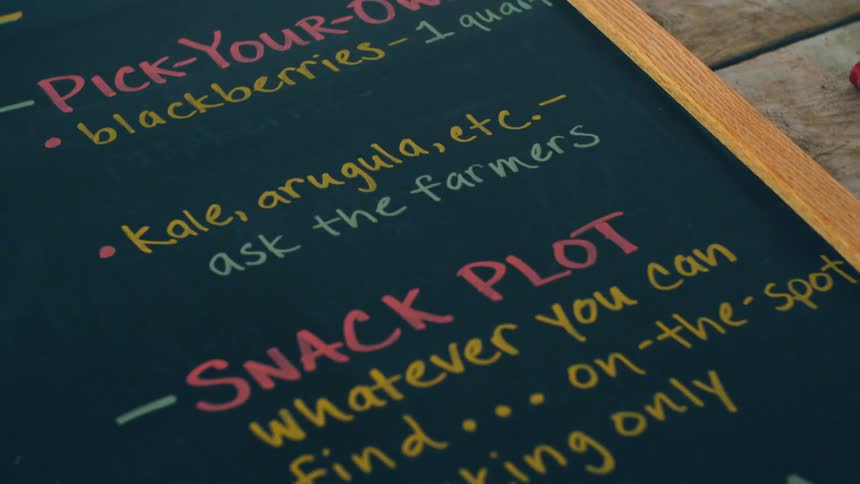 PICK-YOUR-OW
• blackberries - 1 quart
• Kale, arugula, etc. -
ask the farmers
- SNACK PLOT
whatever you can
find... on-the-spot
king only